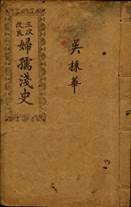 三次
改良
婦孺淺史
吳採華